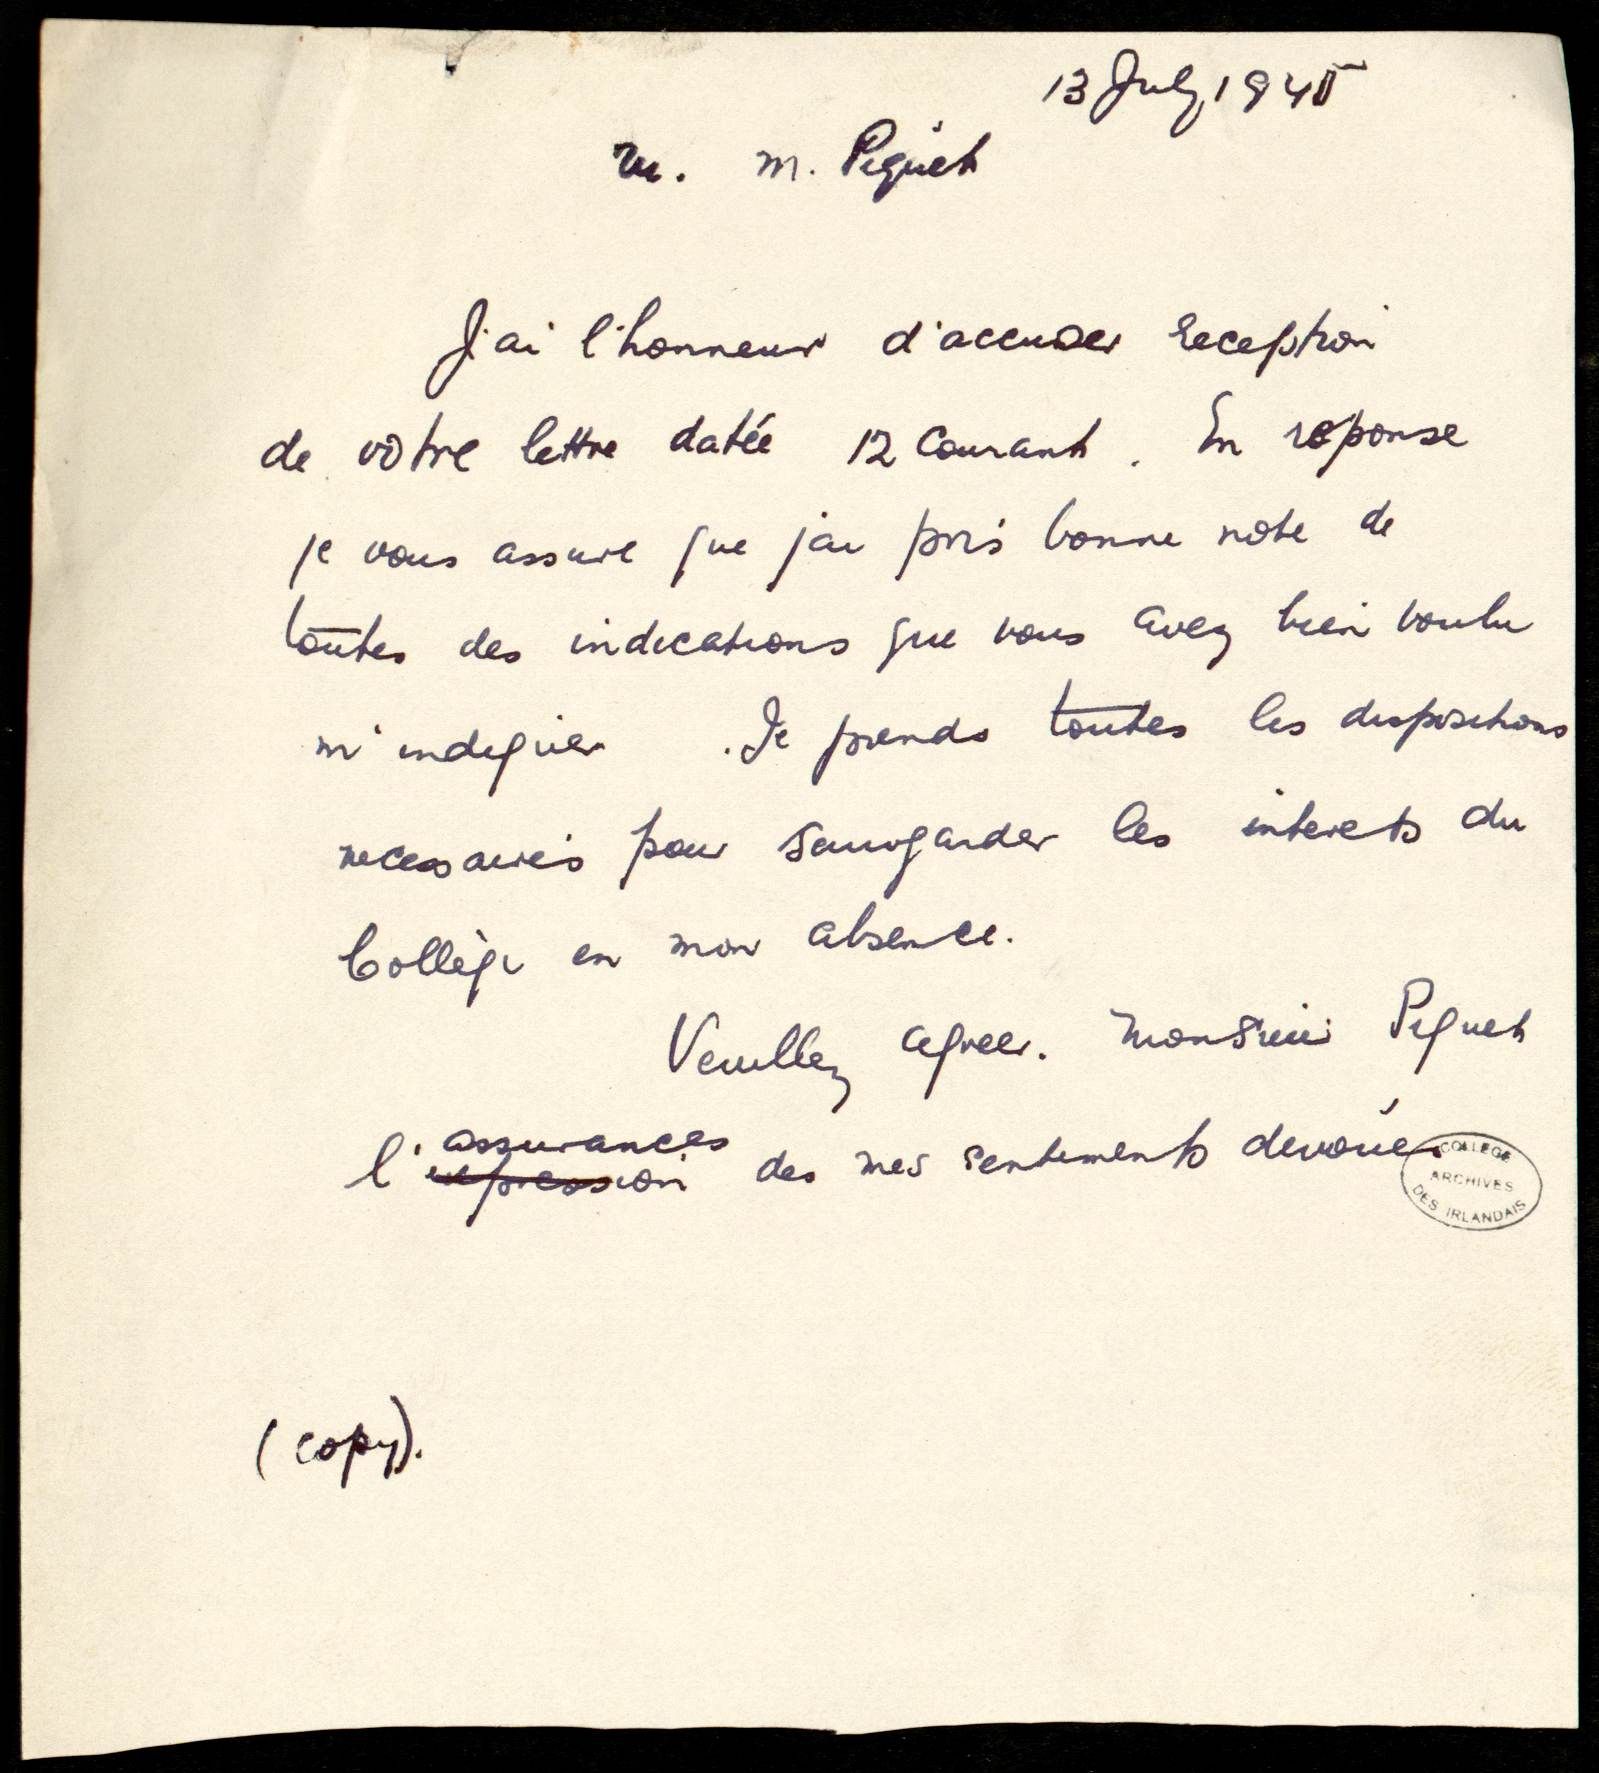 13 July 1945
M. M. Piguet
J'ai l'honneur d'accuser reception
de vôtre lettre datée 12 Courant. En reponse
je vous assure que j'ai pris bonne note de
toutes des indications que vous avez bien voulu
m'indiquer. Je prends toutes les dispositions
necessaires pour sauvgarder les interets du
Collège en mon absence.
Veuillez agreer. Monsieur Piguet
l'assurances
expression des mes sentements devoués
COLLEGE
ARCHIVES
DES IRLANDAIS
(copy).